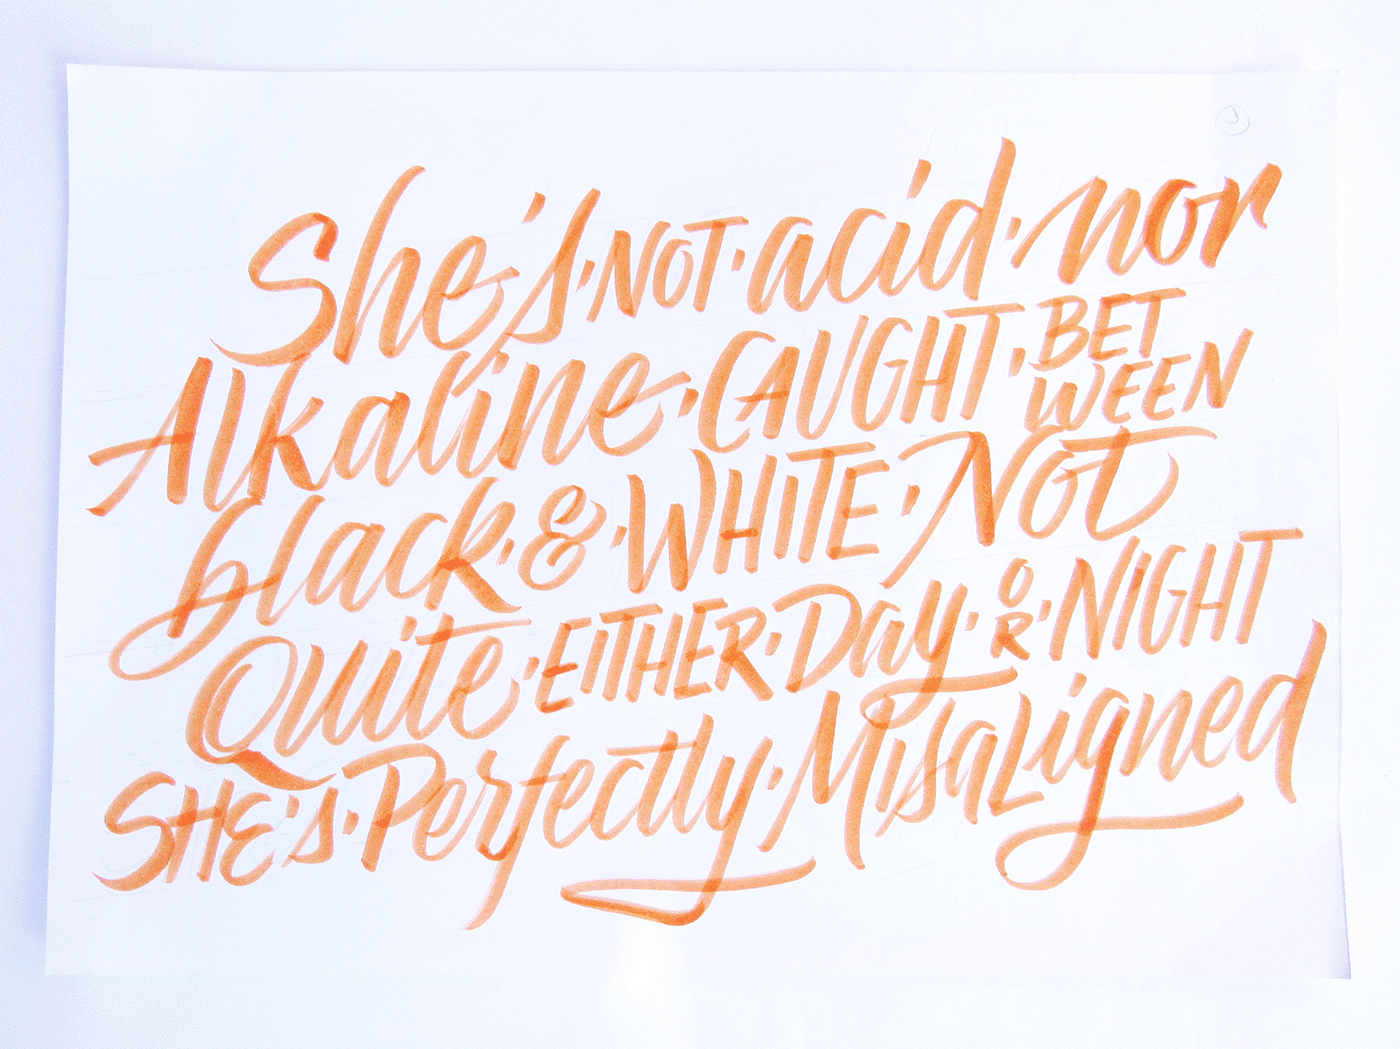 She's · NOT · acid · nor
Alkaline · CAUGHT · BETWEEN
black · & · WHITE · Not
Quite · EITHER · Day · OR · NIGHT
SHE's · Perfectly · MisaLigned